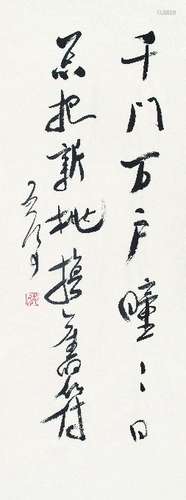 千门万户曈〻日
总把新桃换旧符